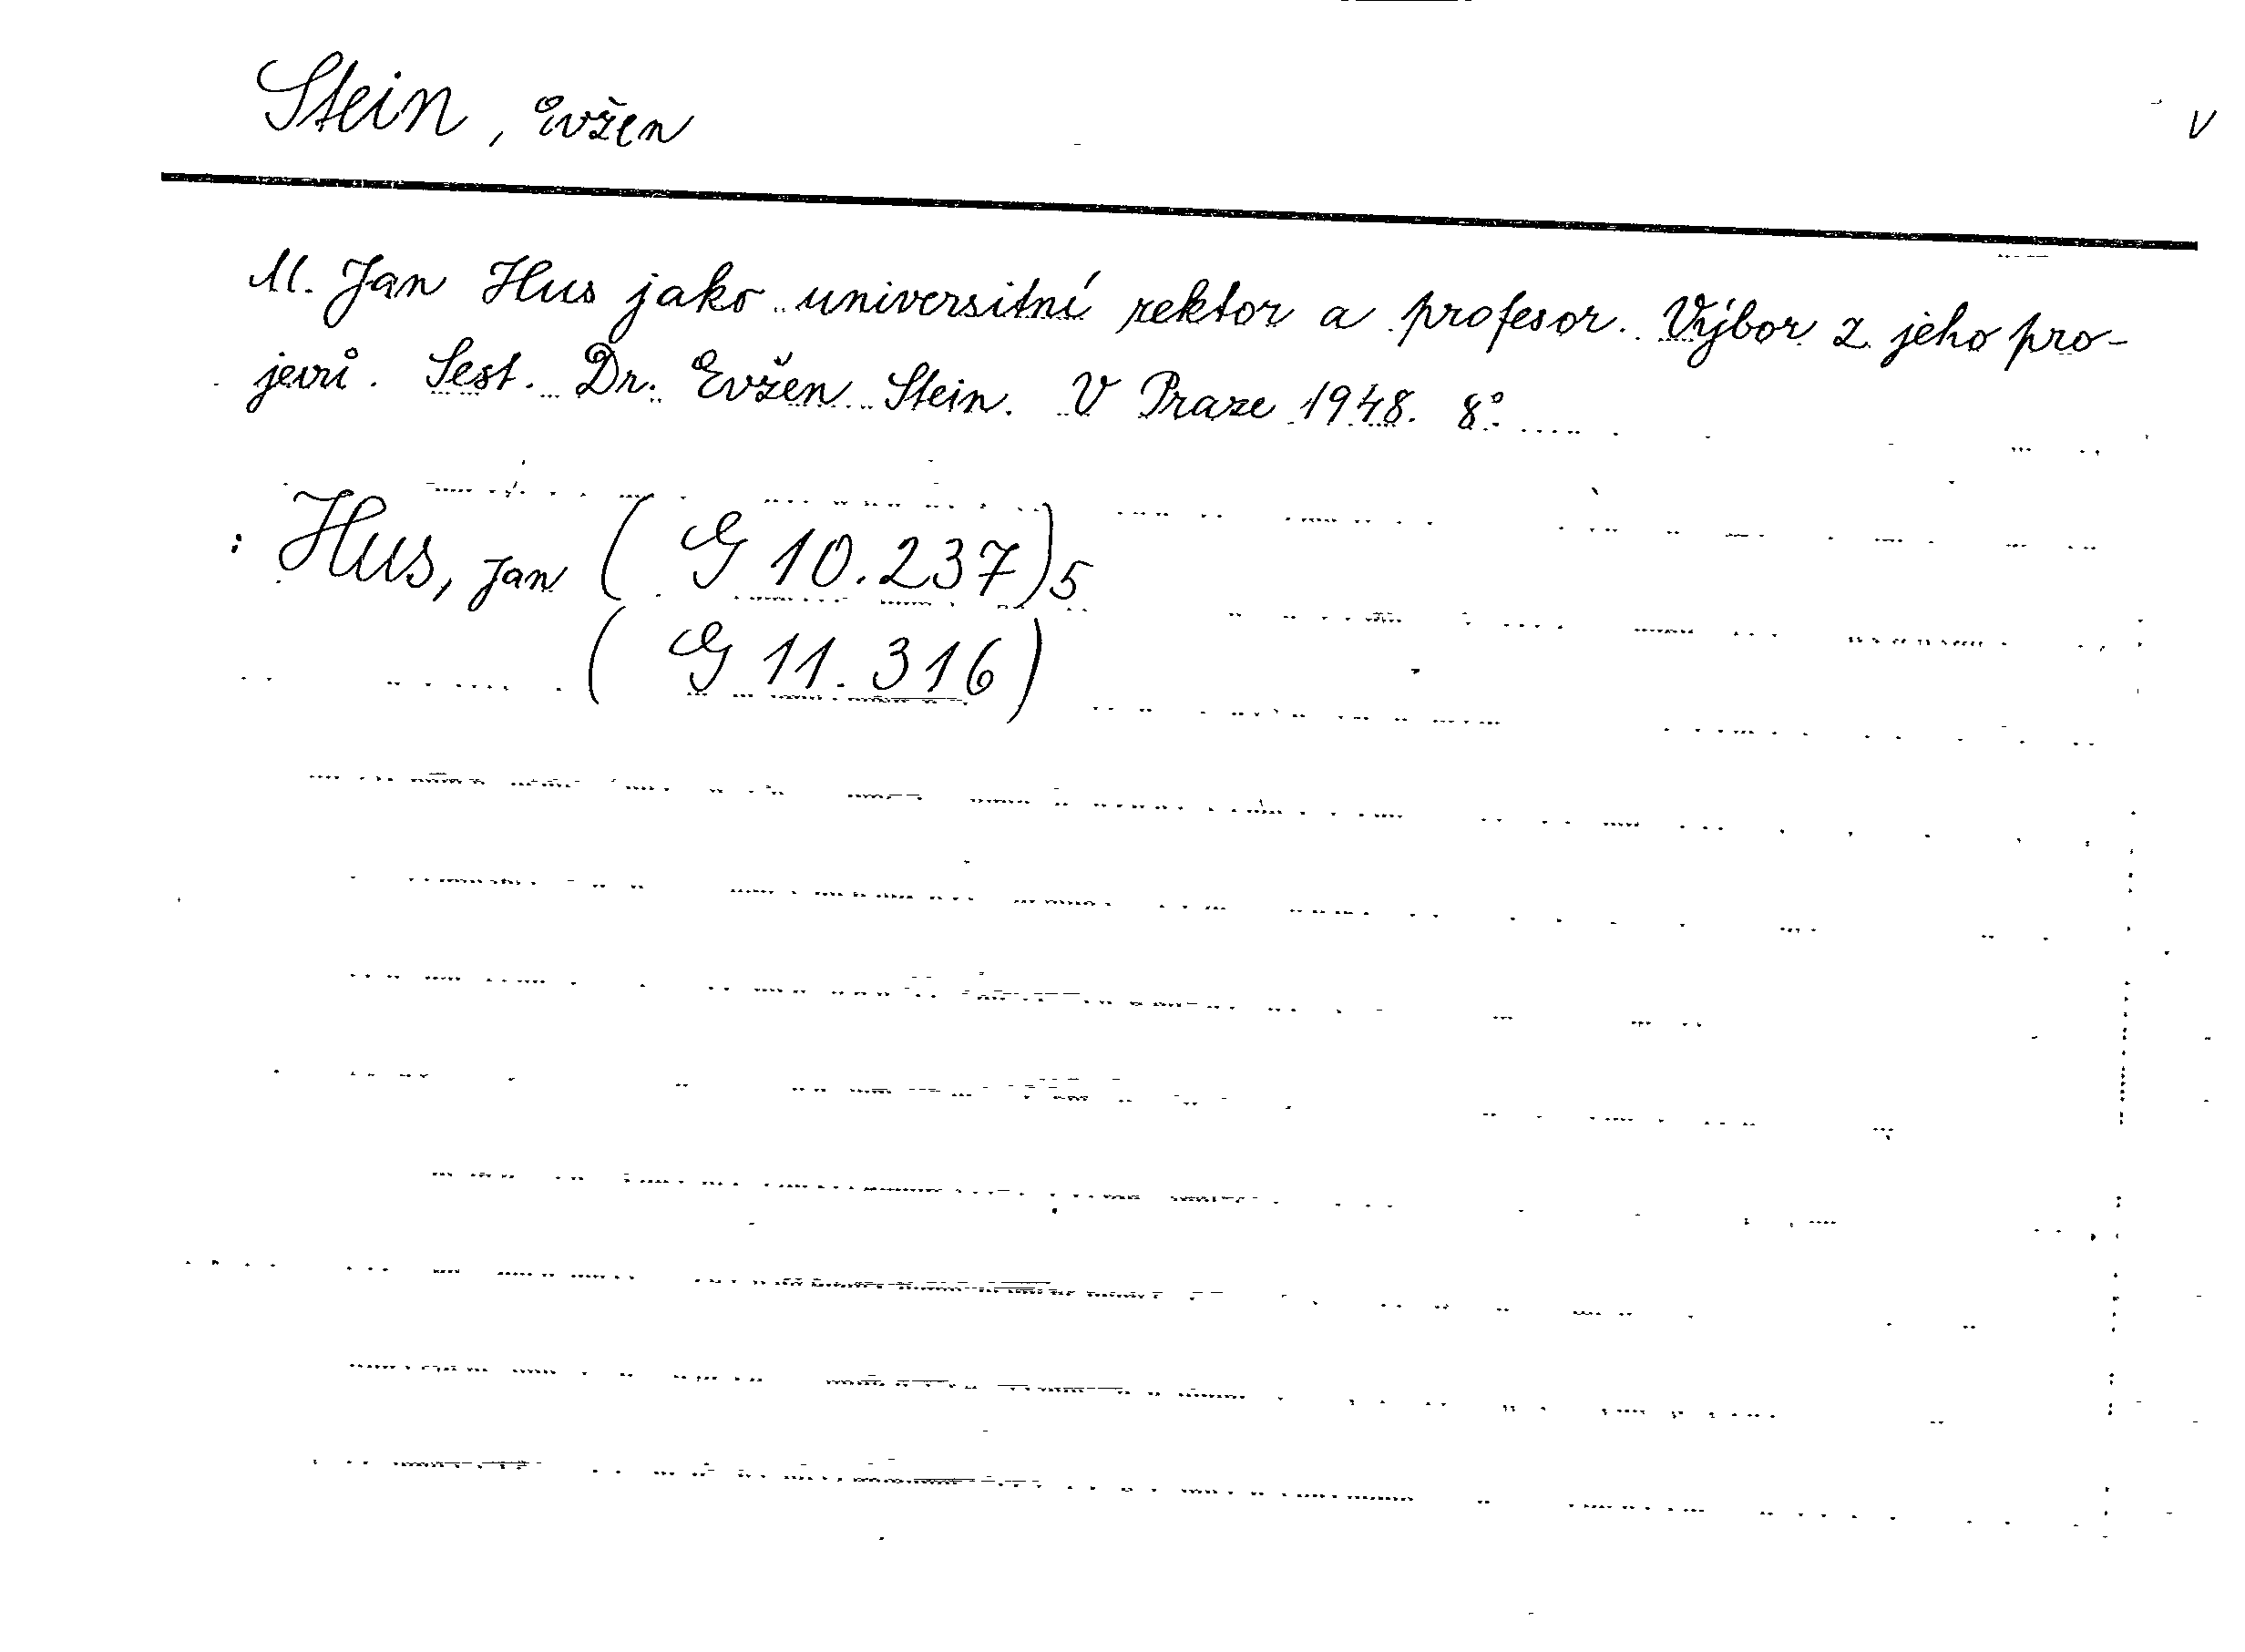 Stein, Evžen
V
M. Jan Hus jako universitní rektor a profesor. Výbor z jeho pro-
jevů. Sest. Dr. Evžen Stein. V Praze 1948. 8°.
: Hus, Jan ( G 10.237)5
( G 11.316)